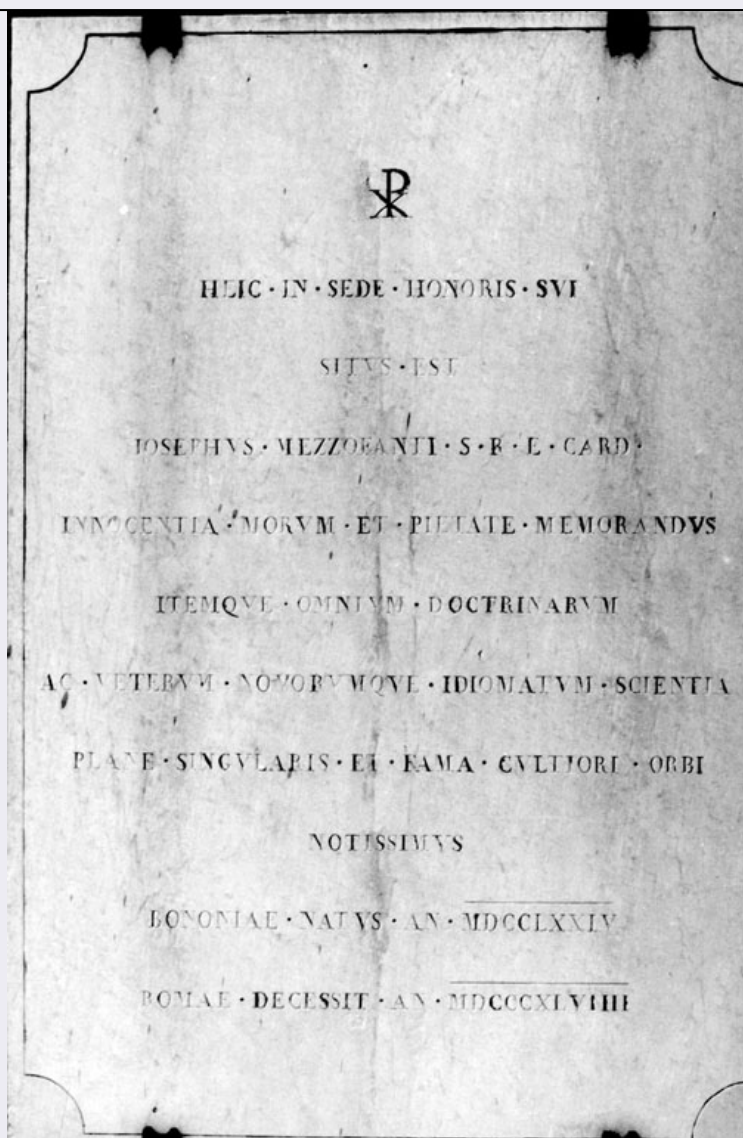 ☧
HEIC · IN · SEDE · HONORIS · SVI
SITVS · EST
IOSEPHVS · MEZZOFANTI · S · R · E · CARD ·
INNOCENTIA · MORVM · ET · PIETATE · MEMORANDVS
ITEMQVE · OMNIVM · DOCTRINARVM
AC · VETERVM · NOVORVMQVE · IDIOMATVM · SCIENTIA
PLANE · SINGVLARIS · ET · FAMA · CVLTIORI · ORBI
NOTISSIMVS
BONONIAE · NATVS · AN · MDCCLXXIV
ROMAE · DECESSIT · AN · MDCCCXLVIIII